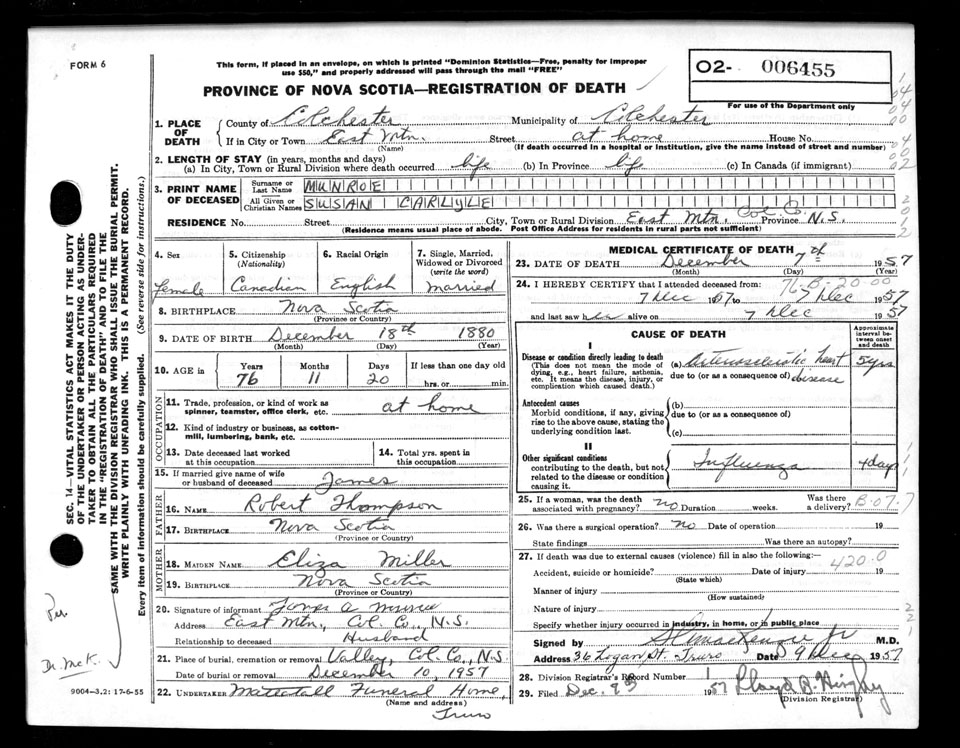 FORM 6
This form, if placed in an envelope, on which is printed "Dominion Statistics—Free, penalty for improper
use $50," and properly addressed will pass through the mail "FREE"
02- 006455
PROVINCE OF NOVA SCOTIA—REGISTRATION OF DEATH
For use of the Department only
1. PLACE OF DEATH
County of Colchester Municipality of Colchester
If in City or Town East Mtn. Street at home House No.
(Name) (If death occurred in a hospital or institution, give the name instead of street and number)
2. LENGTH OF STAY (in years, months and days)
(a) In City, Town or Rural Division where death occurred life (b) In Province life (c) In Canada (if immigrant)
3. PRINT NAME OF DECEASED
Surname or Last Name MUNROE
All Given or Christian Names SUSAN CARLYLE
RESIDENCE No. Street City, Town or Rural Division East Mtn. Col. Co. Province N.S.
(Residence means usual place of abode. Post Office Address for residents in rural parts not sufficient)
4. Sex Female
5. Citizenship (Nationality) Canadian
6. Racial Origin English
7. Single, Married, Widowed or Divorced (write the word) Married
8. BIRTHPLACE Nova Scotia
(Province or Country)
9. DATE OF BIRTH December 18th 1880
(Month) (Day) (Year)
10. AGE in Years 76 Months 11 Days 20 If less than one day old hrs. or min.
OCCUPATION
11. Trade, profession, or kind of work as spinner, teamster, office clerk, etc. at home
12. Kind of industry or business, as cotton-mill, lumbering, bank, etc.
13. Date deceased last worked at this occupation
14. Total yrs. spent in this occupation
15. If married give name of wife or husband of deceased James
FATHER
16. NAME Robert Thompson
17. BIRTHPLACE Nova Scotia
(Province or Country)
MOTHER
18. MAIDEN NAME Eliza Miller
19. BIRTHPLACE Nova Scotia
(Province or Country)
20. Signature of informant James A Munroe
Address East Mtn., Col. Co., N.S.
Relationship to deceased Husband
21. Place of burial, cremation or removal Valley, Col. Co., N.S.
Date of burial or removal December 10, 1957
22. UNDERTAKER Mattatall Funeral Home,
(Name and address)
Truro
MEDICAL CERTIFICATE OF DEATH
23. DATE OF DEATH December 7th 1957
(Month) (Day) (Year)
76-B-20 00
24. I HEREBY CERTIFY that I attended deceased from:
7 Dec 1957 to 7 Dec 1957
and last saw her alive on 7 Dec 1957
CAUSE OF DEATH
Approximate interval between onset and death
I
Disease or condition directly leading to death
(This does not mean the mode of dying, e.g., heart failure, asthenia, etc. It means the disease, injury, or complication which caused death.)
(a) Arteriosclerotic heart 5 yrs
due to (or as a consequence of) disease
Antecedent causes
Morbid conditions, if any, giving rise to the above cause, stating the underlying condition last.
(b)
due to (or as a consequence of)
(c)
II
Other significant conditions
contributing to the death, but not related to the disease or condition causing it.
Influenza 4 days
25. If a woman, was the death associated with pregnancy? no Duration weeks. Was there a delivery? B-07.7
26. Was there a surgical operation? no Date of operation 19
State findings Was there an autopsy?
27. If death was due to external causes (violence) fill in also the following:—
420.0
Accident, suicide or homicide? Date of injury 19
(State which)
Manner of injury
(How sustained)
Nature of injury
Specify whether injury occurred in industry, in home, or in public place
Signed by M.D.
Address 36 Logan St. Truro Date 9 Dec 1957
28. Division Registrar's Record Number
29. Filed Dec. 9 1957
(Division Registrar)
SEC. 14—VITAL STATISTICS ACT MAKES IT THE DUTY
OF THE UNDERTAKER OR PERSON ACTING AS UNDER-
TAKER TO OBTAIN ALL THE PARTICULARS REQUIRED
IN THE "REGISTRATION OF DEATH" AND TO FILE THE
SAME WITH THE DIVISION REGISTRAR WHO SHALL ISSUE THE BURIAL PERMIT.
WRITE PLAINLY WITH UNFADING INK. THIS IS A PERMANENT RECORD.
Every item of information should be carefully supplied. (See reverse side for instructions.)
Per
Dr. McK.
9004—3.2: 17-6-55